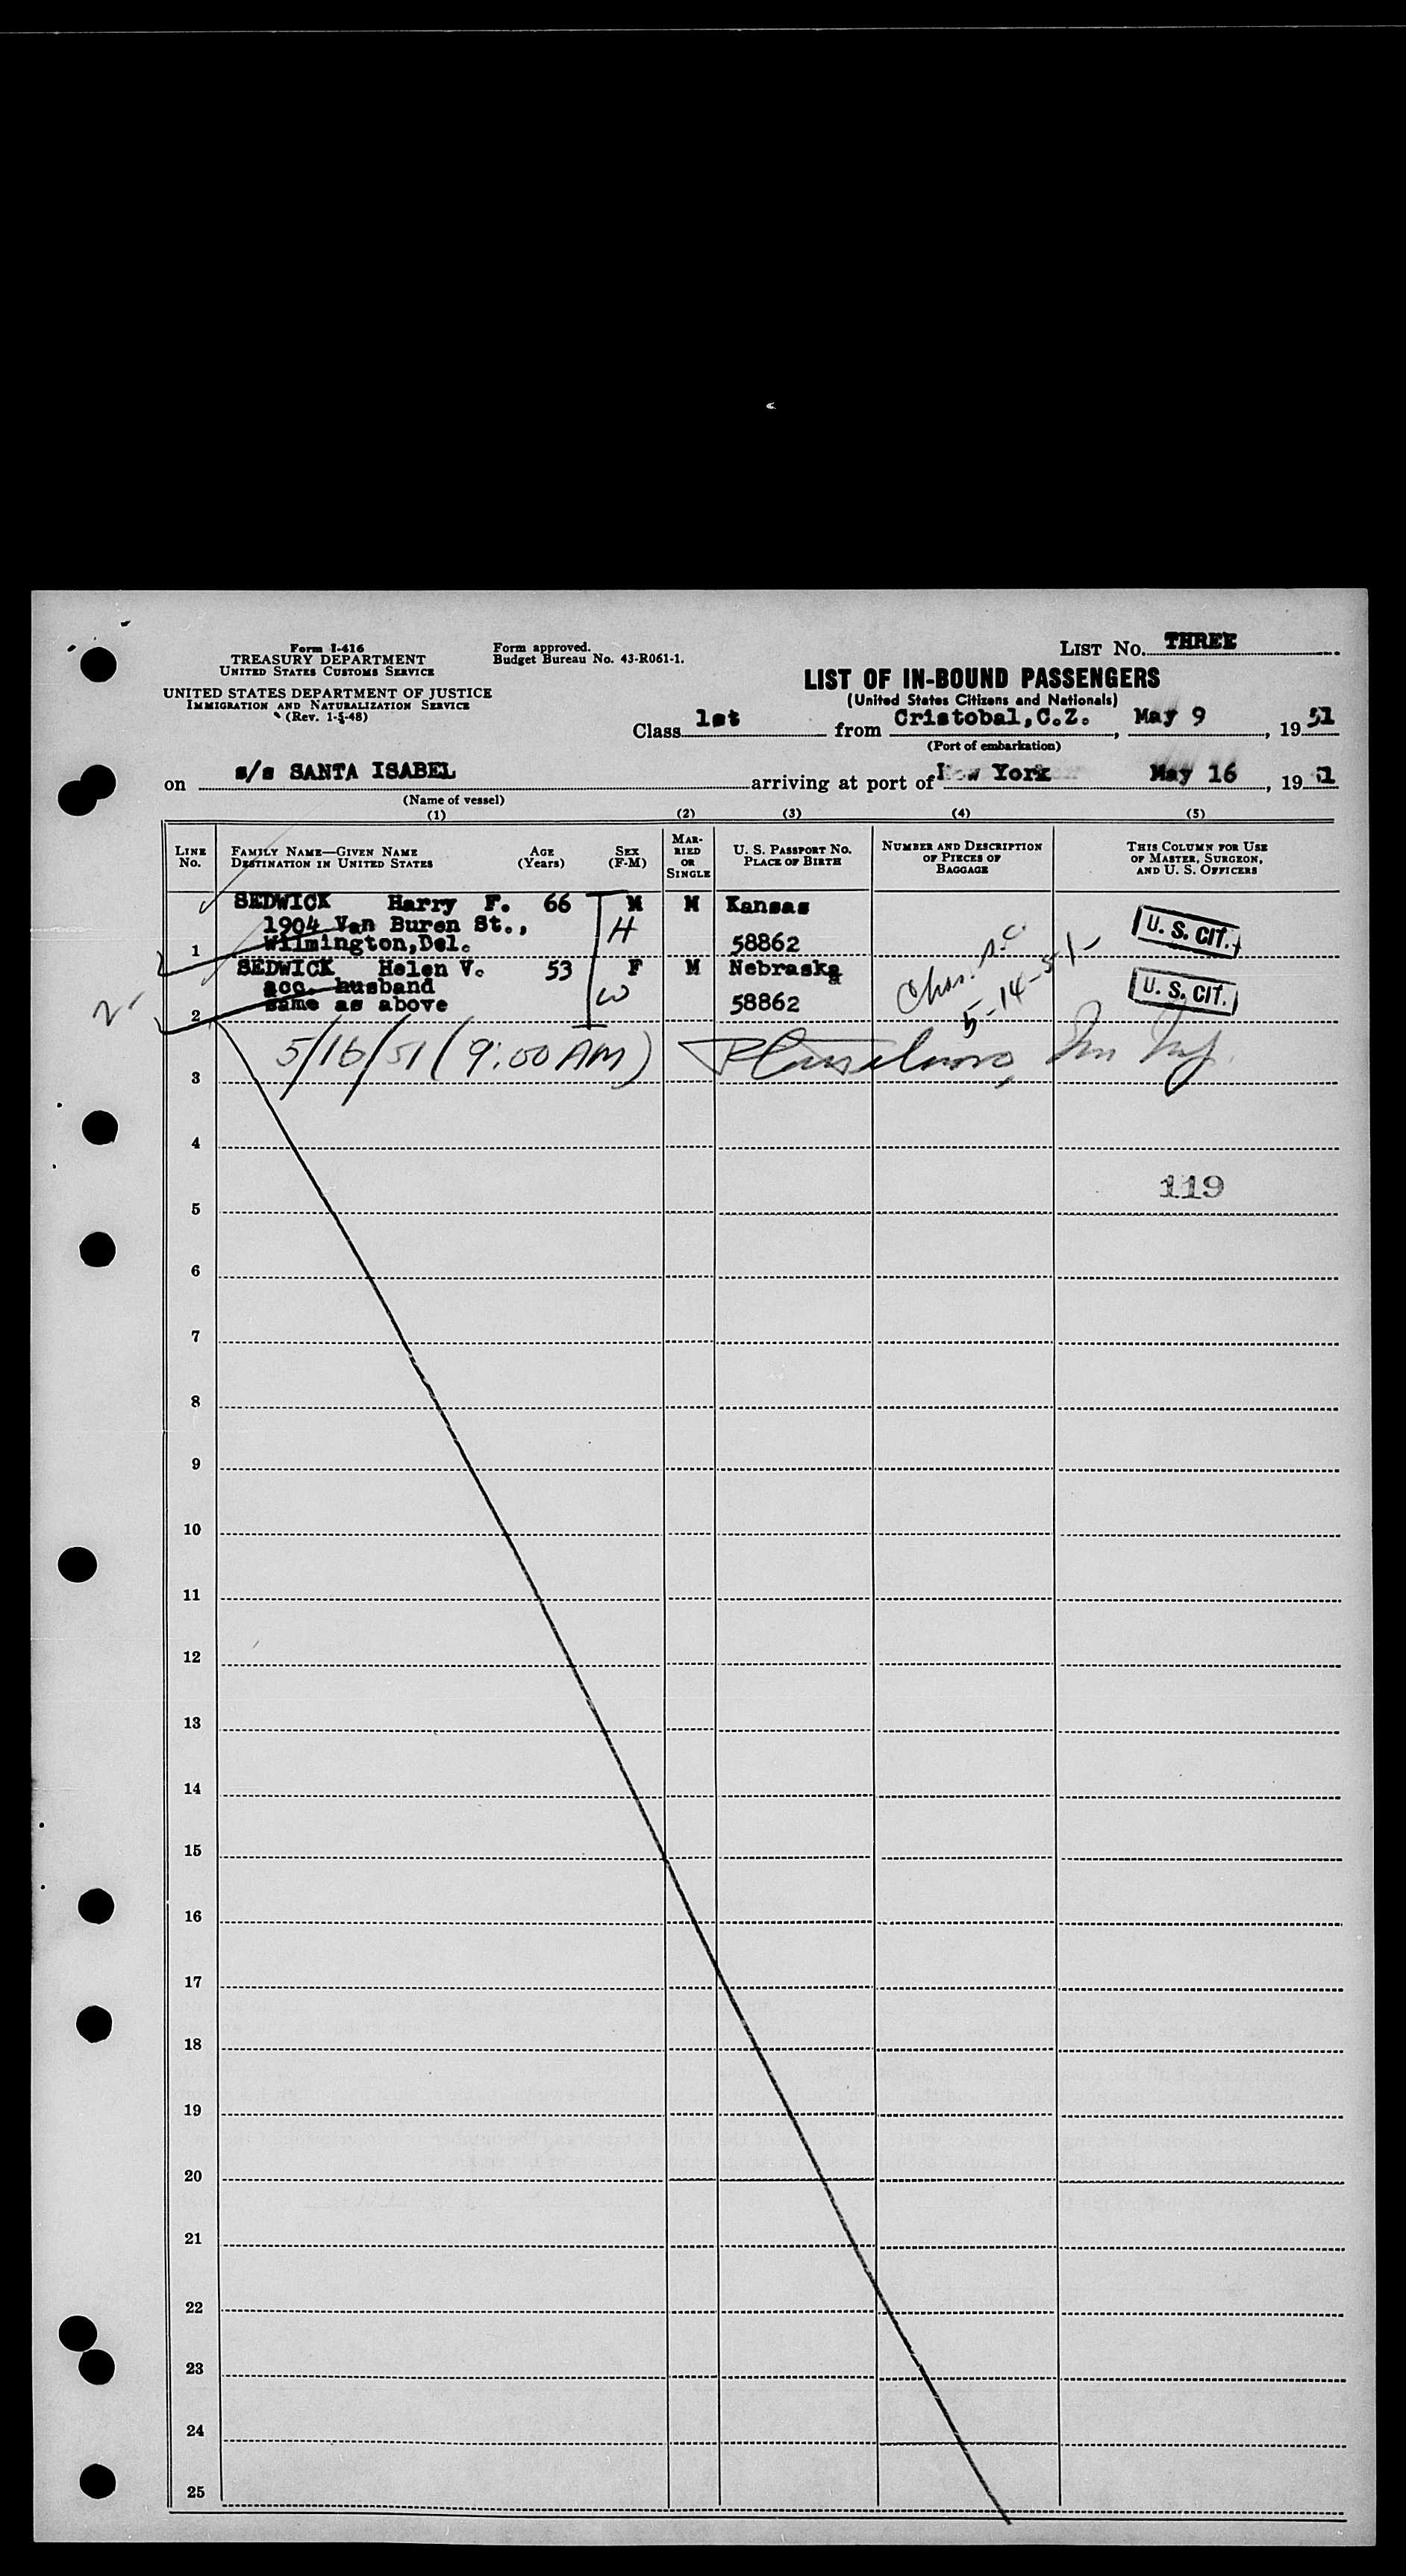 Form I-416
TREASURY DEPARTMENT
UNITED STATES CUSTOMS SERVICE
UNITED STATES DEPARTMENT OF JUSTICE
IMMIGRATION AND NATURALIZATION SERVICE
(Rev. 1-5-48)
Form approved.
Budget Bureau No. 43-R061-1.
LIST No. THREE
LIST OF IN-BOUND PASSENGERS
(United States Citizens and Nationals)
Class 1st from Cristobal,C.Z., May 9, 1951
(Port of embarkation)
on s/s SANTA ISABEL arriving at port of New York May 16, 1951
(Name of vessel)
(1) (2) (3) (4) (5)
LINE No. FAMILY NAME—GIVEN NAME DESTINATION IN UNITED STATES AGE (Years) SEX (F-M) MARRIED OR SINGLE U. S. PASSPORT No. PLACE OF BIRTH NUMBER AND DESCRIPTION OF PIECES OF BAGGAGE THIS COLUMN FOR USE OF MASTER, SURGEON, AND U. S. OFFICERS
SEDWICK Harry F. 66 M M Kansas
1904 Van Buren St., H U. S. CIT.
1 Wilmington,Del. 58862
SEDWICK Helen V. 53 F M Nebraska
acc. husband W Chas. S.C. U. S. CIT.
2 same as above 58862 5-14-51
5/16/51 (9:00 AM)
3
4
119
5
6
7
8
9
10
11
12
13
14
15
16
17
18
19
20
21
22
23
24
25